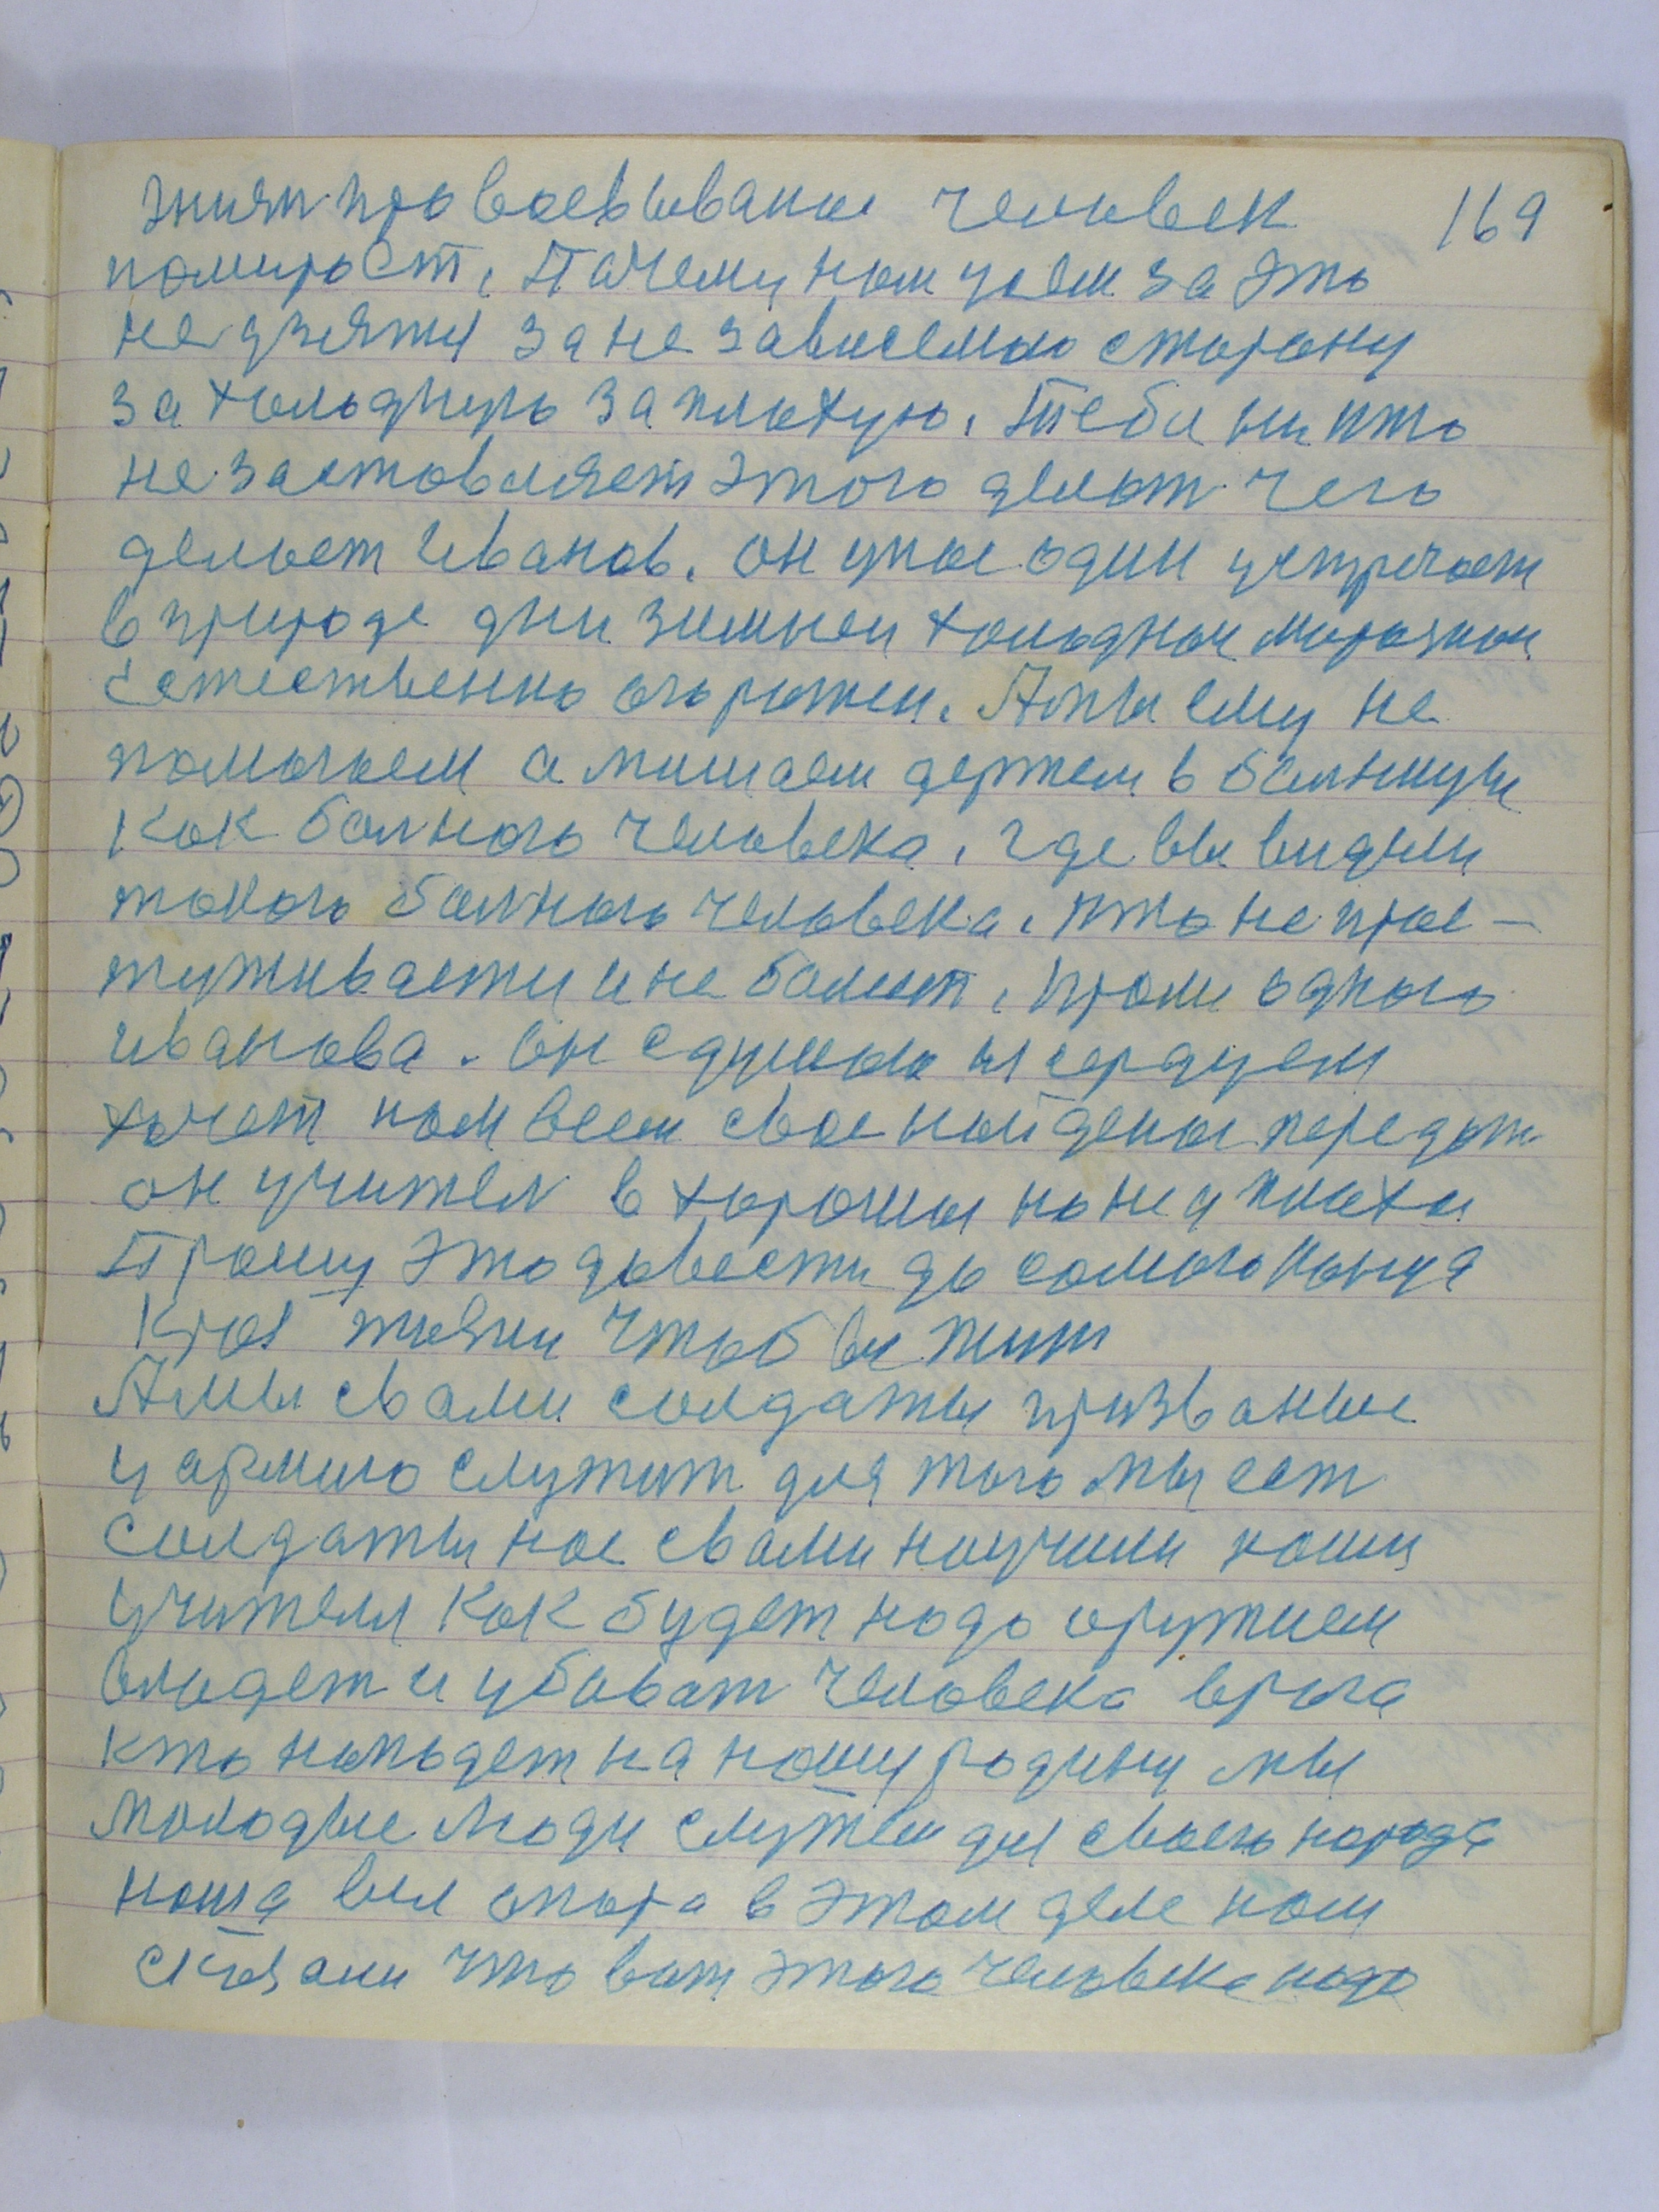 169
зниям провоевывания человек
помирает. Пачему нам усем за это
не дзятця за не зависемою сторону
за холодную за плохую. Тебя нихто
не заставляет этого делат чего
делает Иванов. он у нас один устричает
в природе дни зимнеи холоднаи марознаи
естественно ... Амы ему не
помогаем а мишаем держем в балницы
как балного человека, где вы видили
такого балного человека. кто не прос-
тужываетця и не балеит, кроми одного
Иванова. он с душою и сердцем
хочет нам всем свое найденое передат
он учител в хорошим но не а плохом
Прошу это довести до самого конца
края жизни чтоб вы жили
Амы с вами солдаты призваные
у армию служит для того мы ест
солдаты нас с вами научили наши
учителя как будет надо оружием
владет и убиват человека врага
кто нападет на нашу родину мы
молодые люди служем для своего народа
наша вся опора в этом деле нам
сказали что вот этого человека надо